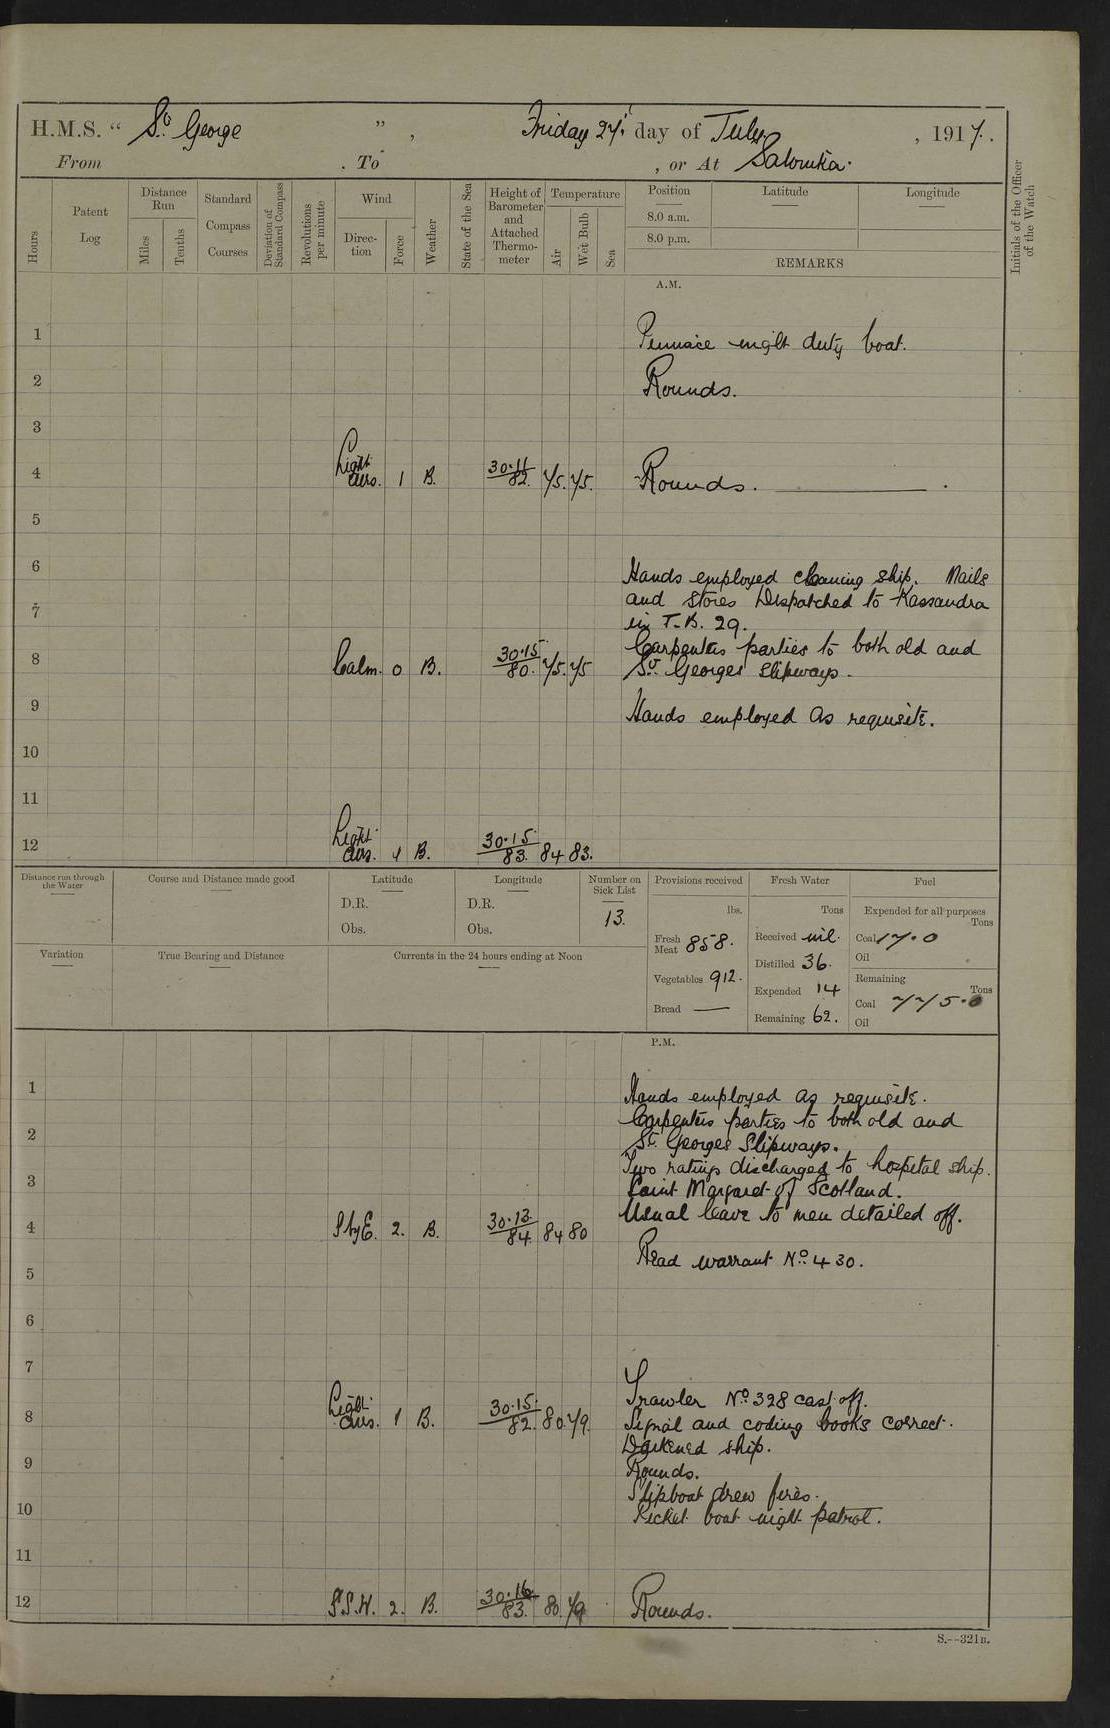 H.M.S. “ St George ” , Friday 27th day of July , 1917.
From . To , or At Salonika.
Hours
Patent Log
Distance Run
Miles
Tenths
Standard Compass Courses
Deviation of Standard Compass
Revolutions per minute
Wind
Direction
Force
Weather
State of the Sea
Height of Barometer and Attached Thermometer
Temperature
Air
Wet Bulb
Sea
Position
8.0 a.m.
8.0 p.m.
Latitude
Longitude
REMARKS
Initials of the Officer of the Watch
A.M.
1 Pinnace night duty boat.
2 Rounds.
3
4 Light airs. 1 B. 30.11 82. 75. 75. Rounds.
5
6 Hands employed cleaning ship. Mails
and stores Dispatched to Kassandra
7 in T.B. 29.
Carpenters parties to both old and
8 Calm. 0 B. 30.15 80. 75. 75 St. Georges Slipways.
9 Hands employed as requisite.
10
11
12 Light airs. 1 B. 30.15 83. 84 83.
Distance run through the Water
Course and Distance made good
Latitude
D.R.
Obs.
Longitude
D.R.
Obs.
Number on Sick List
13.
Variation
True Bearing and Distance
Currents in the 24 hours ending at Noon
Provisions received
lbs.
Fresh Meat 858.
Vegetables 912.
Bread —
Fresh Water
Tons
Received nil.
Distilled 36.
Expended 14
Remaining 62.
Fuel
Expended for all purposes
Tons
Coal 17.0
Oil
Remaining
Tons
Coal 775.0
Oil
P.M.
1 Hands employed as requisite.
Carpenters parties to both old and
2 St. Georges Slipways.
Two ratings discharged to hospital ship.
3 Saint Margaret of Scotland.
Usual leave to men detailed off.
4 S by E. 2. B. 30.13 84. 84 80
Read warrant No. 430.
5
6
7
Trawler No. 328 cast off.
8 Light airs. 1 B. 30.15. 82. 80. 79. Signal and coding books correct.
Darkened ship.
9 Rounds.
Slipboat drew fires.
10 Picket boat night patrol.
11
12 S.S.W. 2. B. 30.16 83. 80. 79 Rounds.
S.—321B.